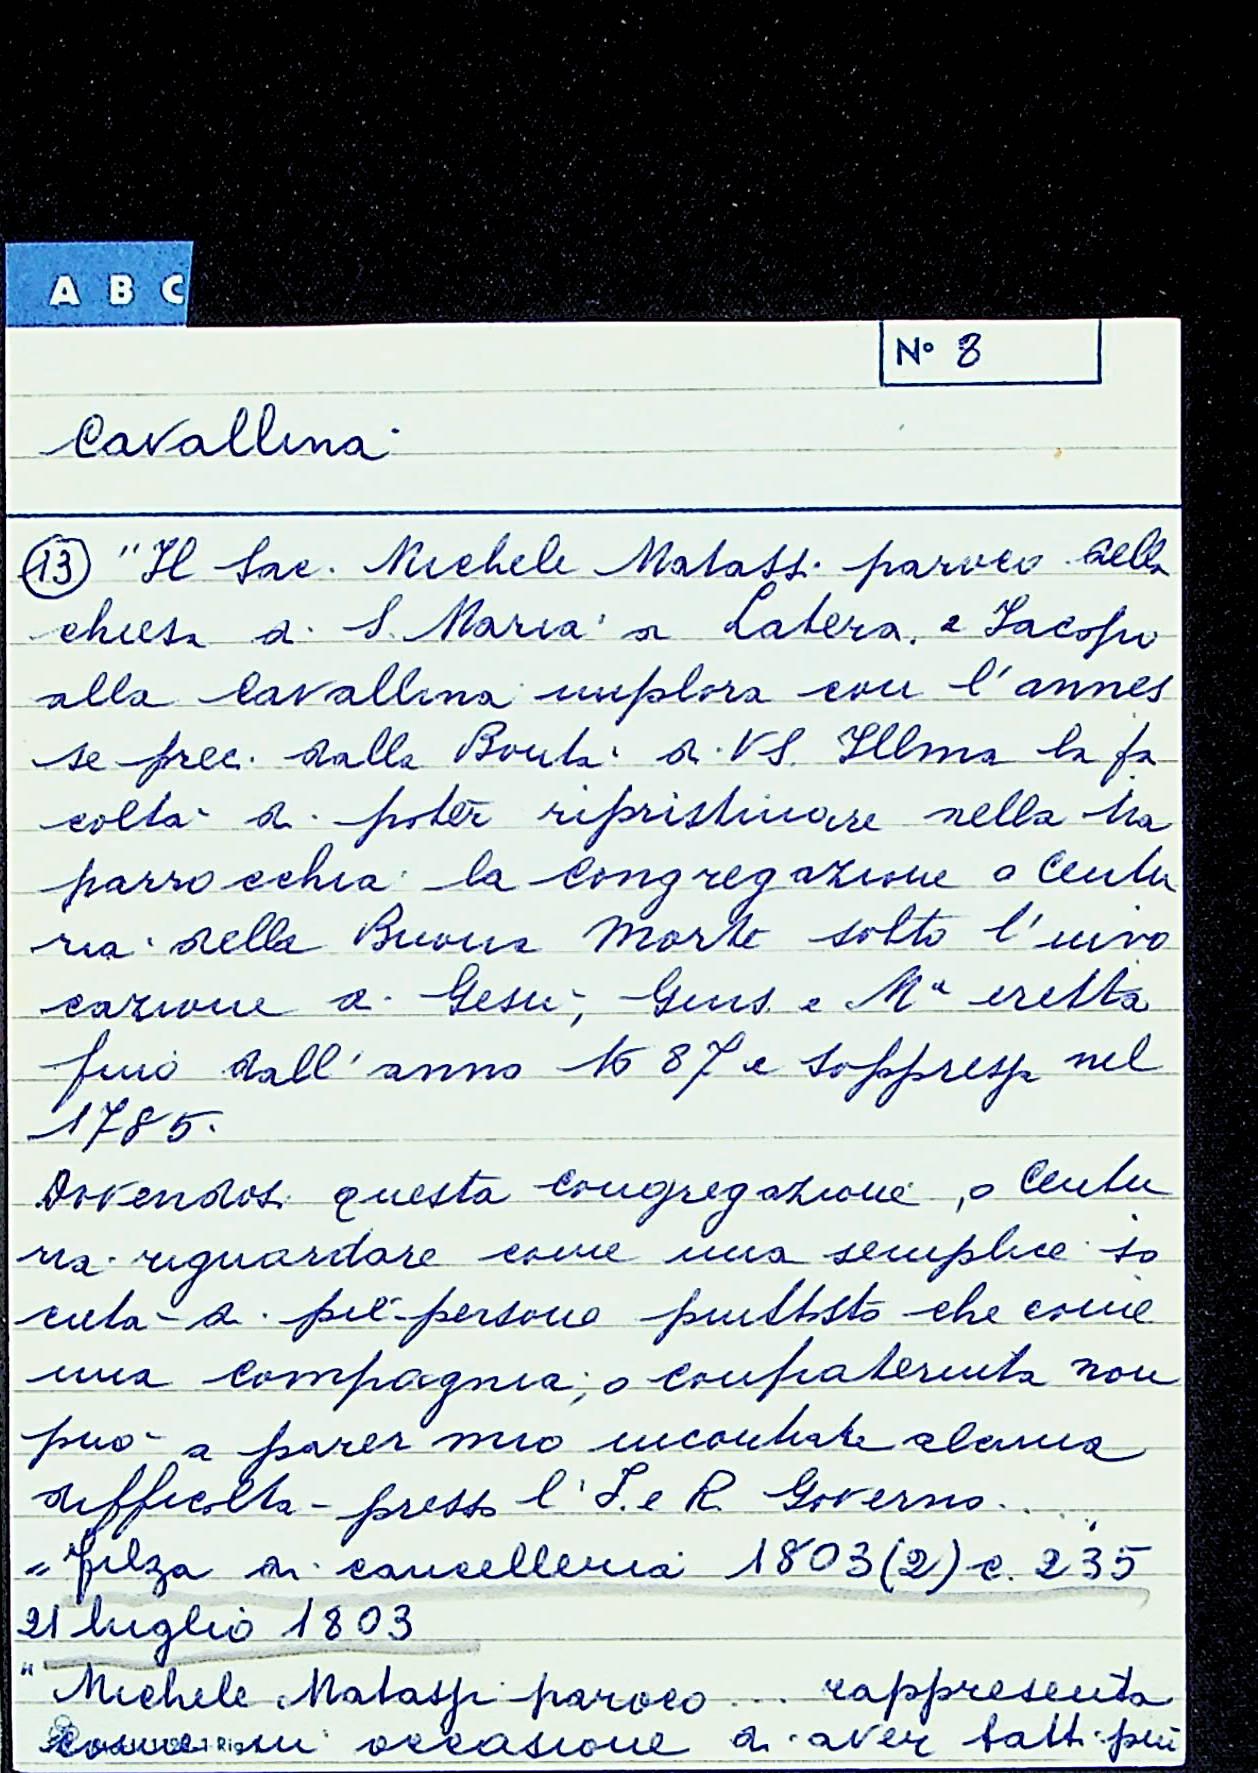 A B C
N° 8
Cavallina
13 "Il Sac. Michele Matassi paroco della
chiesa di S. Maria a Latera e Iacopo
alla Cavallina implora con l'annes
se prec. dalla Bontà di VS. Illma la fa
coltà di poter ripristinare nella sua
parrocchia la congregazione o Centu
ria della Buona Morte sotto l'invo
cazione di Gesù, Gius. e Mª eretta
fino dall'anno 1687 e soppressa nel
1785.
Dovendosi questa congregazione, o Centu
ria riguardare come una semplice so
cietà di più persone piuttosto che come
una compagnia, o confraternita non
può a parer mio incontrare alcuna
difficoltà presso l'I. e R. Governo...
= Filza di cancelleria 1803(2) c. 235
21 luglio 1803
"Michele Matassi paroco ... rappresenta
come in occasione di aver fatti più